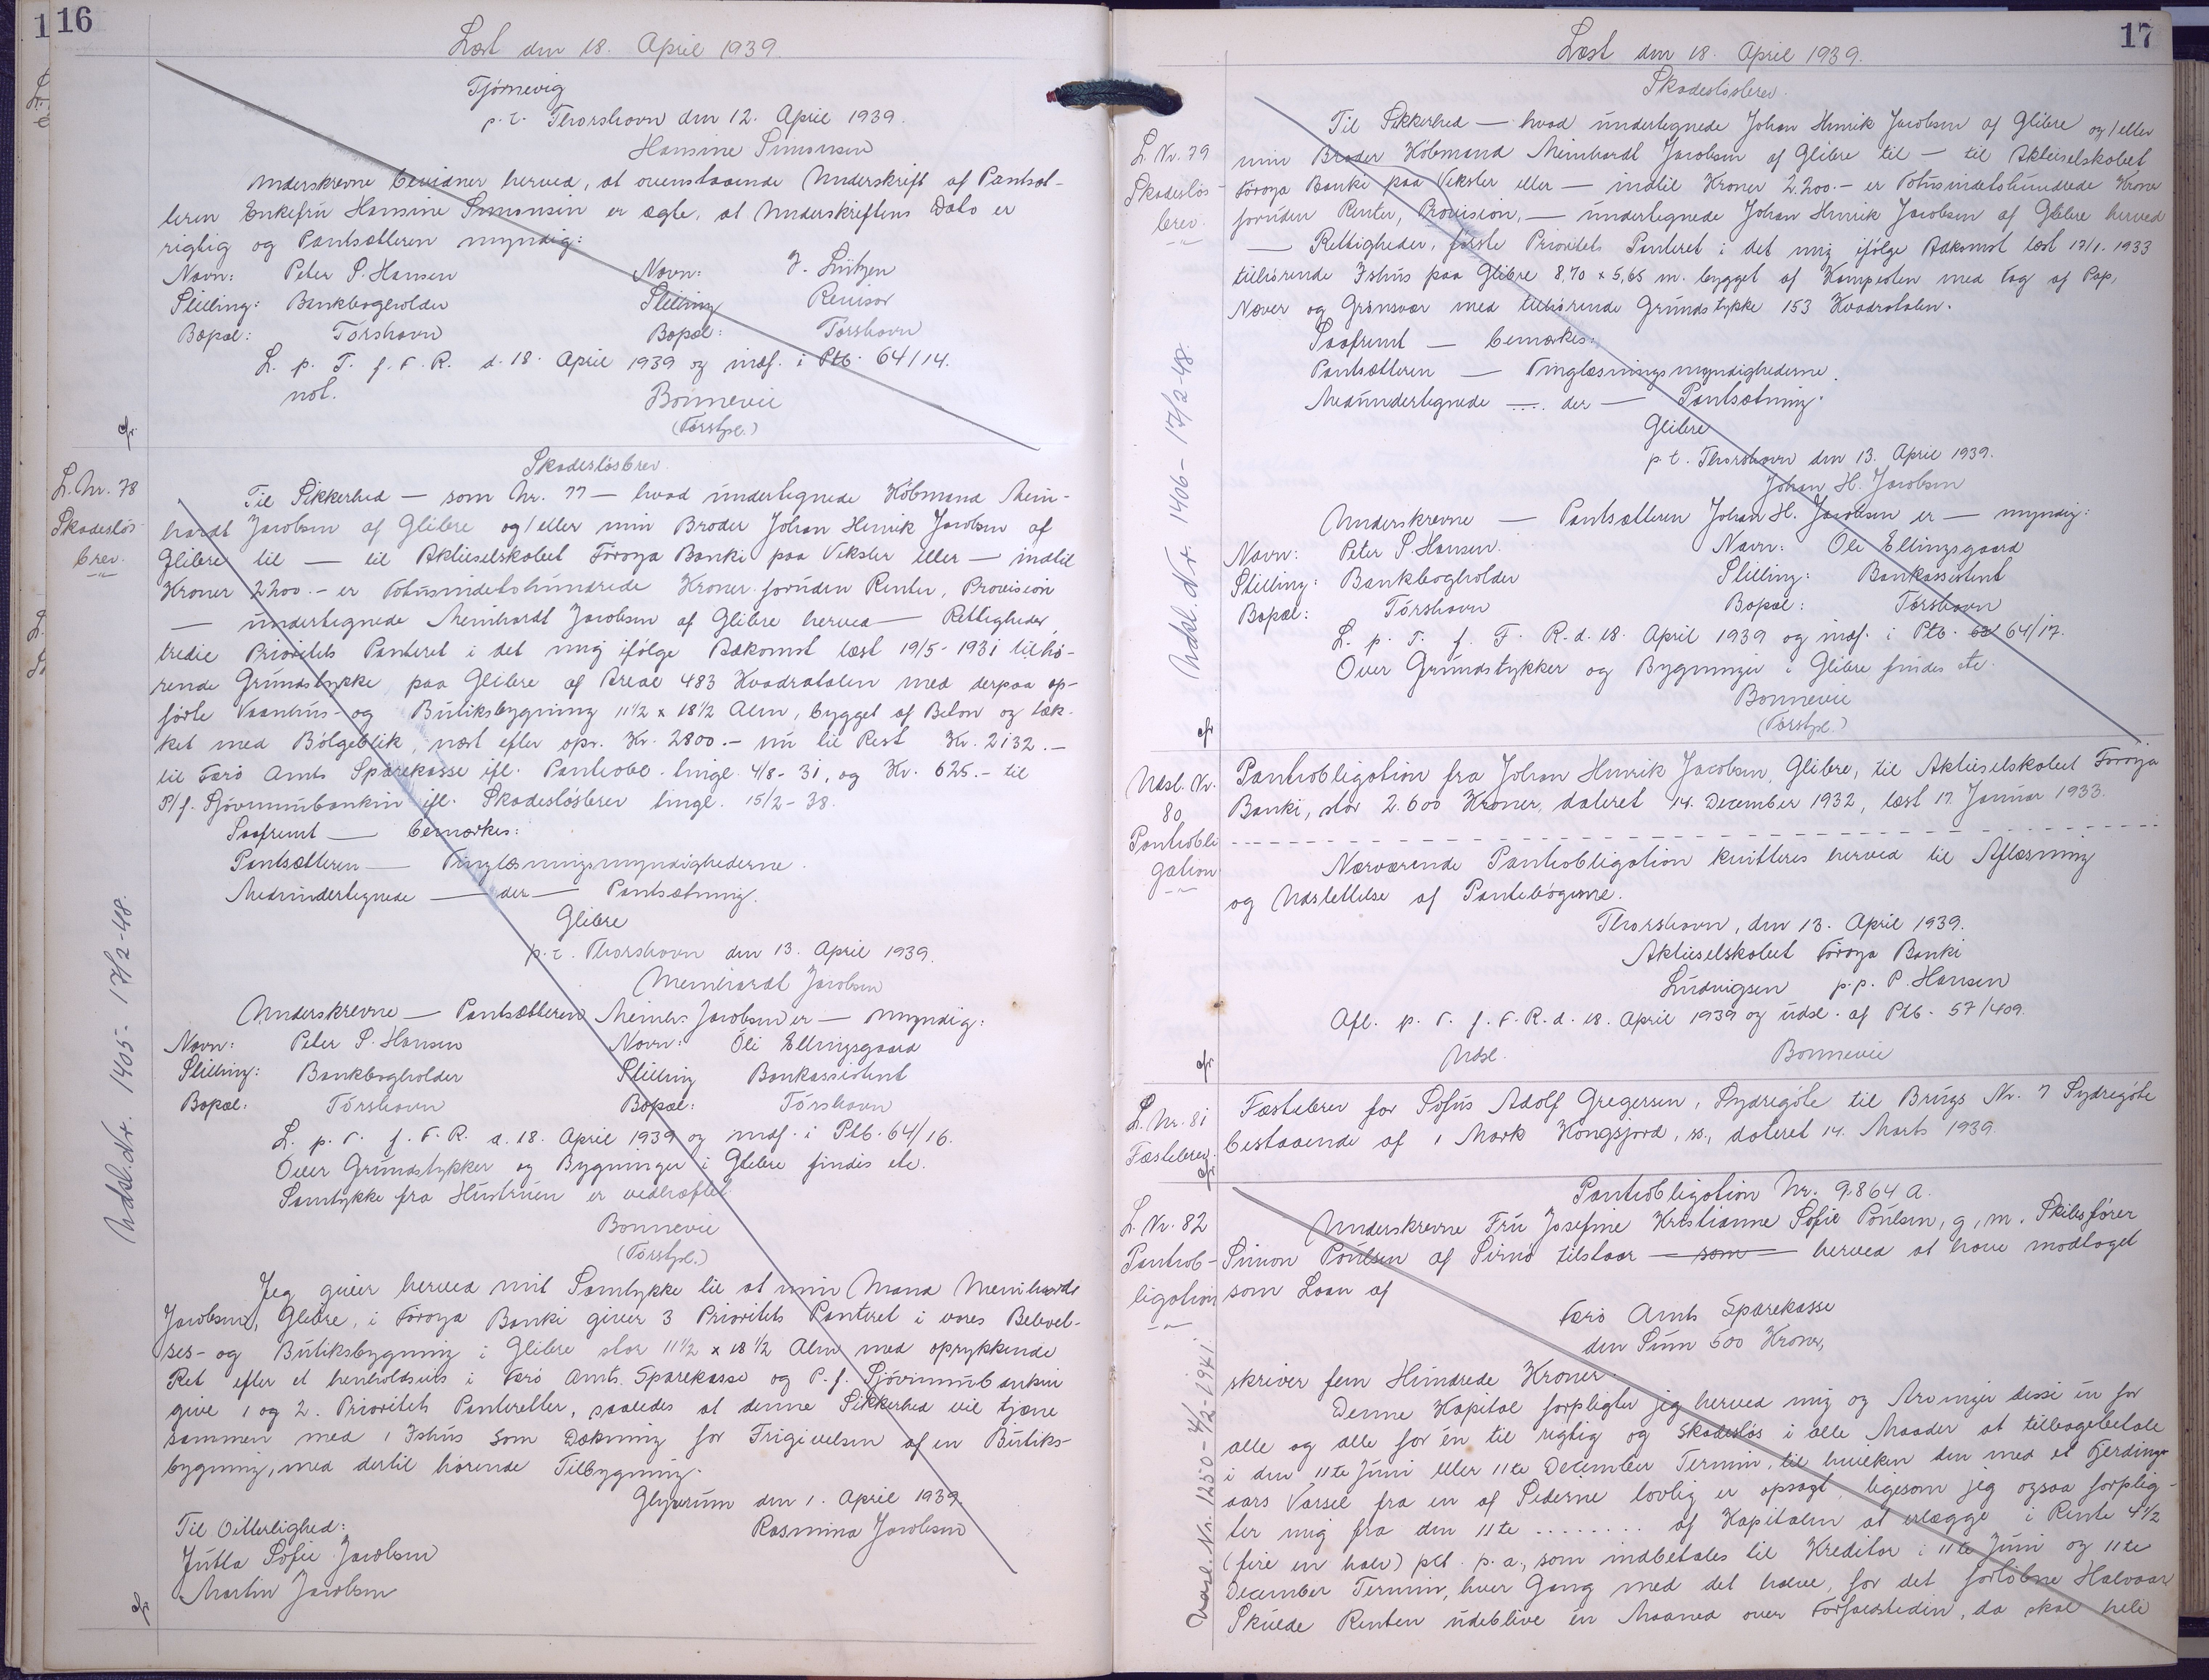 16
Læst den 18. April 1939.
Tjørnevig
p.t. Thorshavn den 12. April 1939.
Hansine Simonsen
Underskrevne bevidner herved, at ovenstaaende Underskrift af Pantsæt-
teren Enkefru Hansine Simonsen er ægte, at Underskriftens Dato er
rigtig og Pantsætteren myndig:
Navn: Peter S. Hansen Navn: J. Lützen
Stilling: Bankbogholder Stilling Revisor
Bopæl: Tórshavn Bopæl: Tórshavn
L. p. T. f. F. R. d. 18. April 1939 og indf. i Ptb. 64/14.
not. Bonnevie
(Forstpl.)
L. Nr. 78
Skadesløs
brev.
Skadesløsbrev.
Til Sikkerhed — som Nr. 77 — hvad undertegnede Købmand Mein-
hardt Jacobsen af Glibre og/eller min Broder Johan Henrik Jacobsen af
Glibre til — til Aktieselskabet Føroya Banki paa Veksler eller — indtil
Kroner 2200.- er Totusindetohundrede Kroner foruden Renter, Provision
— undertegnede Meinhardt Jacobsen af Glibre herved — Rettigheder,
tredie Prioritets Panteret i det mig ifølge Adkomst læst 19/5-1931 tilhø-
rende Grundstykke paa Glibre af Areal 483 Kvadratalen med derpaa op-
førte Vaanhus- og Butiksbygning 11 1/2 x 18 1/2 Alen, bygget af Beton og tæk-
ket med Bølgeblik, næst efter opr. Kr. 2800.- nu til Rest Kr. 2132.-
til Færø Amts Sparekasse ifl. Pantobl. tingl. 4/8-31, og Kr. 625.- til
P/f. Sjóvinnubankin ifl. Skadesløsbrev tingl. 15/2-38.
Saafremt — bemærkes:
Pantsætteren — Tinglæsningsmyndighederne.
Medundertegnede — der — Pantsætning.
Glibre
p.t. Thorshavn den 13. April 1939.
Meinhardt Jacobsen
Underskrevne — Pantsætteren Meinh. Jacobsen er — myndig:
Navn: Peter S. Hansen Navn: Óli Ellingsgaard
Stilling: Bankbogholder Stilling Bankassistent
Bopæl: Tórshavn Bopæl: Tórshavn
L. p. T. f. F. R. d. 18. April 1939 og indf. i Ptb. 64/16.
Over Grundstykker og Bygninger i Glibre findes etc.
Samtykke fra Hustruen er vedhæftet
Bonnevie
(Forstpl.)
Udsl. Nr. 1405 - 17/2-48.
Jeg giver herved mit Samtykke til at min Mand Meinhardt
Jacobsen, Glibre, i Føroya Banki giver 3 Prioritets Panteret i vores Beboel-
ses- og Butiksbygning i Glibre stor 11 1/2 x 18 1/2 Alen med oprykkende
Ret efter et henholdsvis i Færø Amts Sparekasse og P.f. Sjóvinnubankin
give 1 og 2. Prioritets Panteretter, saaledes at denne Sikkerhed vil tjene
sammen med 1 Ishus som Dækning for Frigivelsen af en Butiks-
bygning, med dertil hørende Tilbygning.
Glyvrum den 1. April 1939.
Til Vitterlighed: Rasmina Jacobsen
Jutta Sofie Jacobsen
Martin Jacobsen
17
Læst den 18. April 1939.
Skadesløsbrev.
L. Nr. 79
Skadesløs
brev.
Til Sikkerhed — hvad undertegnede Johan Henrik Jacobsen af Glibre og/eller
min Broder Købmand Meinhardt Jacobsen af Glibre til — til Aktieselskabet
Føroya Banki paa Veksler eller — indtil Kroner 2.200.- er Totusindetohundrede Krone
foruden Renter, Provision, — undertegnede Johan Henrik Jacobsen af Glibre herved
— Rettigheder, første Prioritets Panteret i det mig ifølge Adkomst læst 17/1. 1933
tilhørende Ishus paa Glibre 8,70 x 5,65 m. bygget af Kampesten med Tag af Pap,
Næver og Grønsvær med tilhørende Grundstykke 153 Kvadratalen.
Saafremt — bemærkes:
Pantsætteren — Tinglæsningsmyndighederne.
Medundertegnede .... der — Pantsætning.
Glibre
p.t. Thorshavn den 13. April 1939.
Johan H. Jacobsen
Underskrevne — Pantsætteren Johan H. Jacobsen er — myndig:
Navn: Peter S. Hansen. Navn: Óli Ellingsgaard
Stilling: Bankbogholder Stilling: Bankassistent
Bopæl: Tórshavn Bopæl: Tórshavn
L. p. T. f. F. R. d. 18. April 1939 og indf. i Ptb. 63/ 64/17.
Over Grundstykker og Bygninger i Glibre findes etc.
Bonnevie
(Forstpl.)
Udsl. Nr. 1406 - 17/2-48.
Udsl. Nr.
80
Pantobli
gation
Pantobligation fra Johan Henrik Jacobsen, Glibre, til Aktieselskabet Føroya
Banki, stor 2.600 Kroner, dateret 14. December 1932, læst 17. Januar 1933.
Nærværende Pantobligation kvitteres herved til Aflæsning
og Udslettelse af Pantebøgerne.
Thorshavn, den 13. April 1939.
Aktieselskabet Føroya Banki
Ludvigsen p.p. P. Hansen
Afl. p. T. f. F. R. d. 18. April 1939 og udsl. af Ptb. 57/409.
Udsl. Bonnevie
L. Nr. 81
Fæstebrev.
Fæstebrev for Sofus Adolf Gregersen, Sydregøte til Brugs Nr. 7 Sydregøte
bestaaende af 1 Mark Kongsjord, dateret 14. Marts 1939.
L. Nr. 82
Pantob-
ligation
Pantobligation Nr. 9864 a.
Underskrevne Fru Josefine Kristianne Sofie Poulsen, g, m. Skibsfører
Simon Poulsen af Svinø tilstaar — som — herved at have modtaget
som Laan af
Færø Amts Sparekasse
den Sum 500 Kroner,
skriver fem Hundrede Kroner.
Denne Kapital forpligter jeg herved mig og Arvinger dissi en for
alle og alle for én til rigtig og skadesløs i alle Maader at tilbagebetale
i den 11te Juni eller 11te December Termin, til hvilken den med et Fjerdings-
aars Varsel fra en af Siderne lovlig er opsagt, ligesom jeg ogsaa forplig-
ter mig fra den 11te ........ af Kapitalen at erlægge i Rente 4 1/2
(fire en halv) pct. p. a., som indbetales til Kreditor i 11te Juni og 11te
December Termin, hver Gang med det halve, for det forløbne Halvaar
Skulde Renten udeblive en Maaned over Forfaldstiden, da skal hele
Udsl. Nr. 1250 - 4/2-1941.